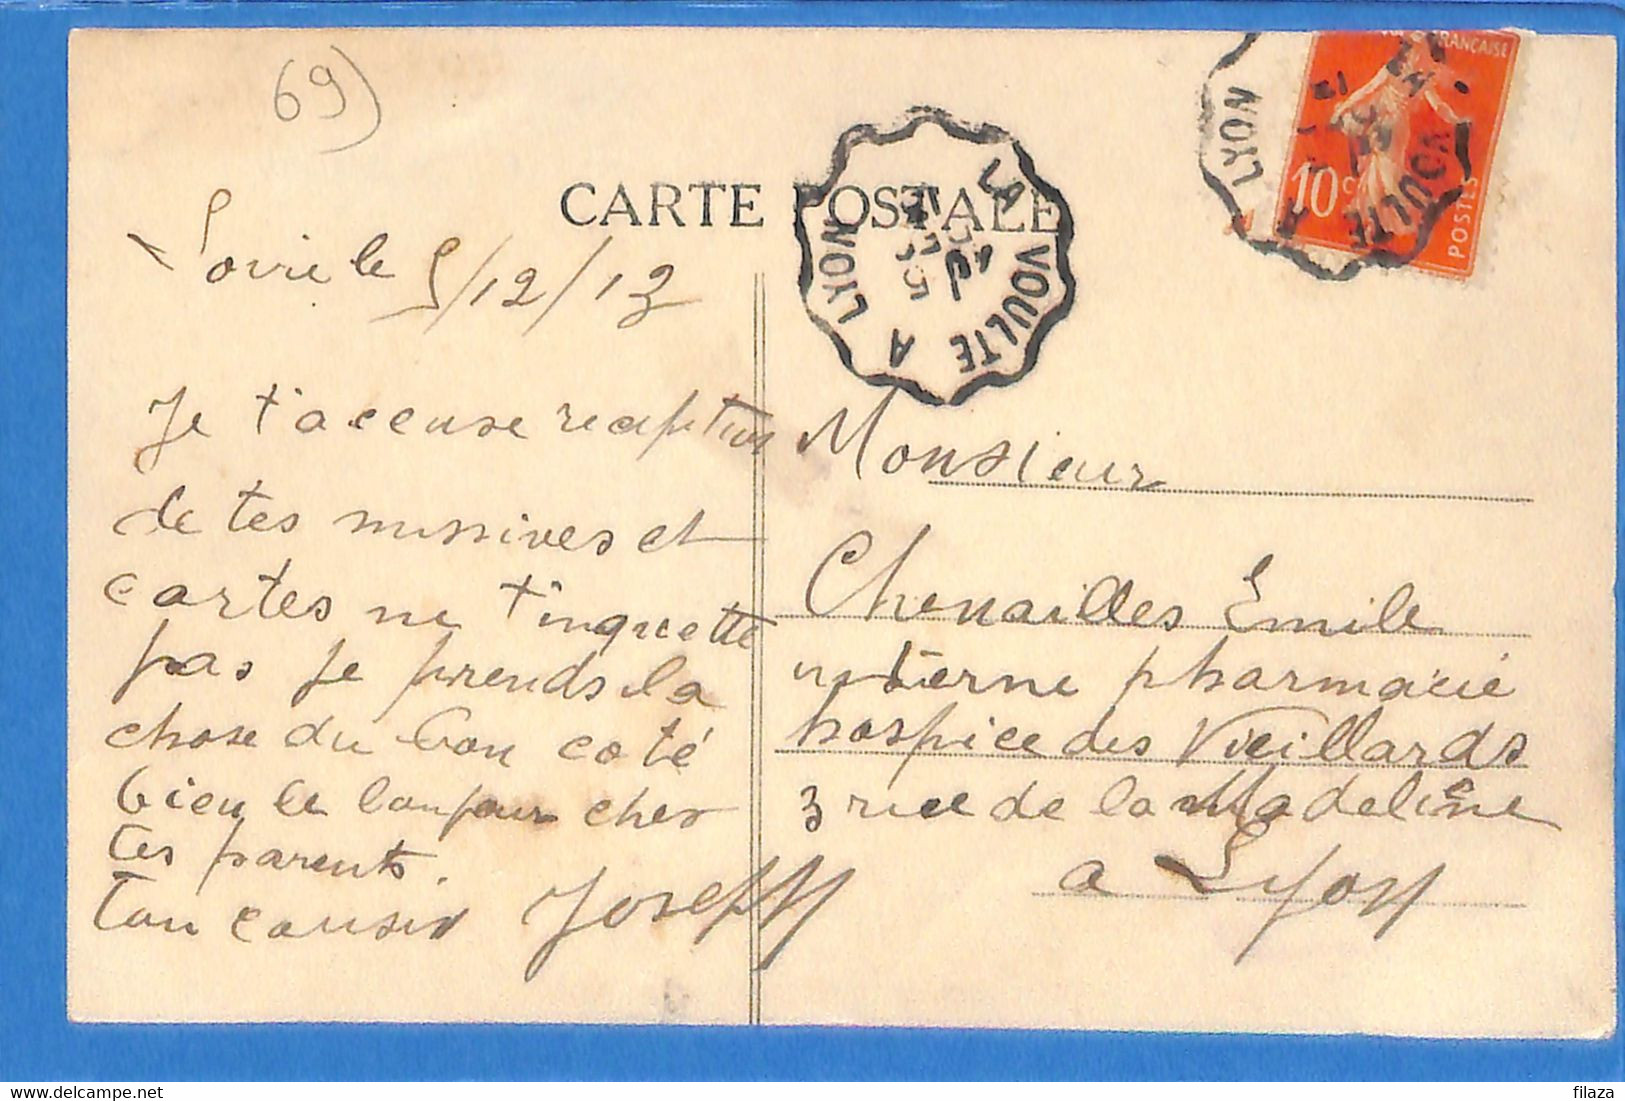 69)
CARTE POSTALE
LA VOULTE A LYON
LYON A
VOULTE
FRANÇAISE
10c
POSTES
Loire le 5/12/13
Je t'accuse reception
de tes missives et
cartes ne t'inquette
pas je prends la
chose du bon coté
bien le bonjour chez
tes parents.
Ton cousin Joseph
Monsieur
Chenailles Emile
interne pharmacie
hospice des Vieillards
3 rue de la Madeleine
a Lyon
filaza